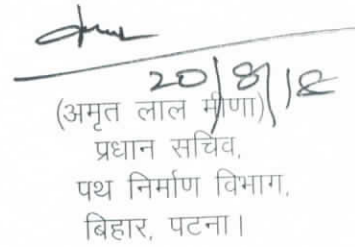 20/8/18
(अमृत लाल मीणा)
प्रधान सचिव,
पथ निर्माण विभाग,
बिहार, पटना।